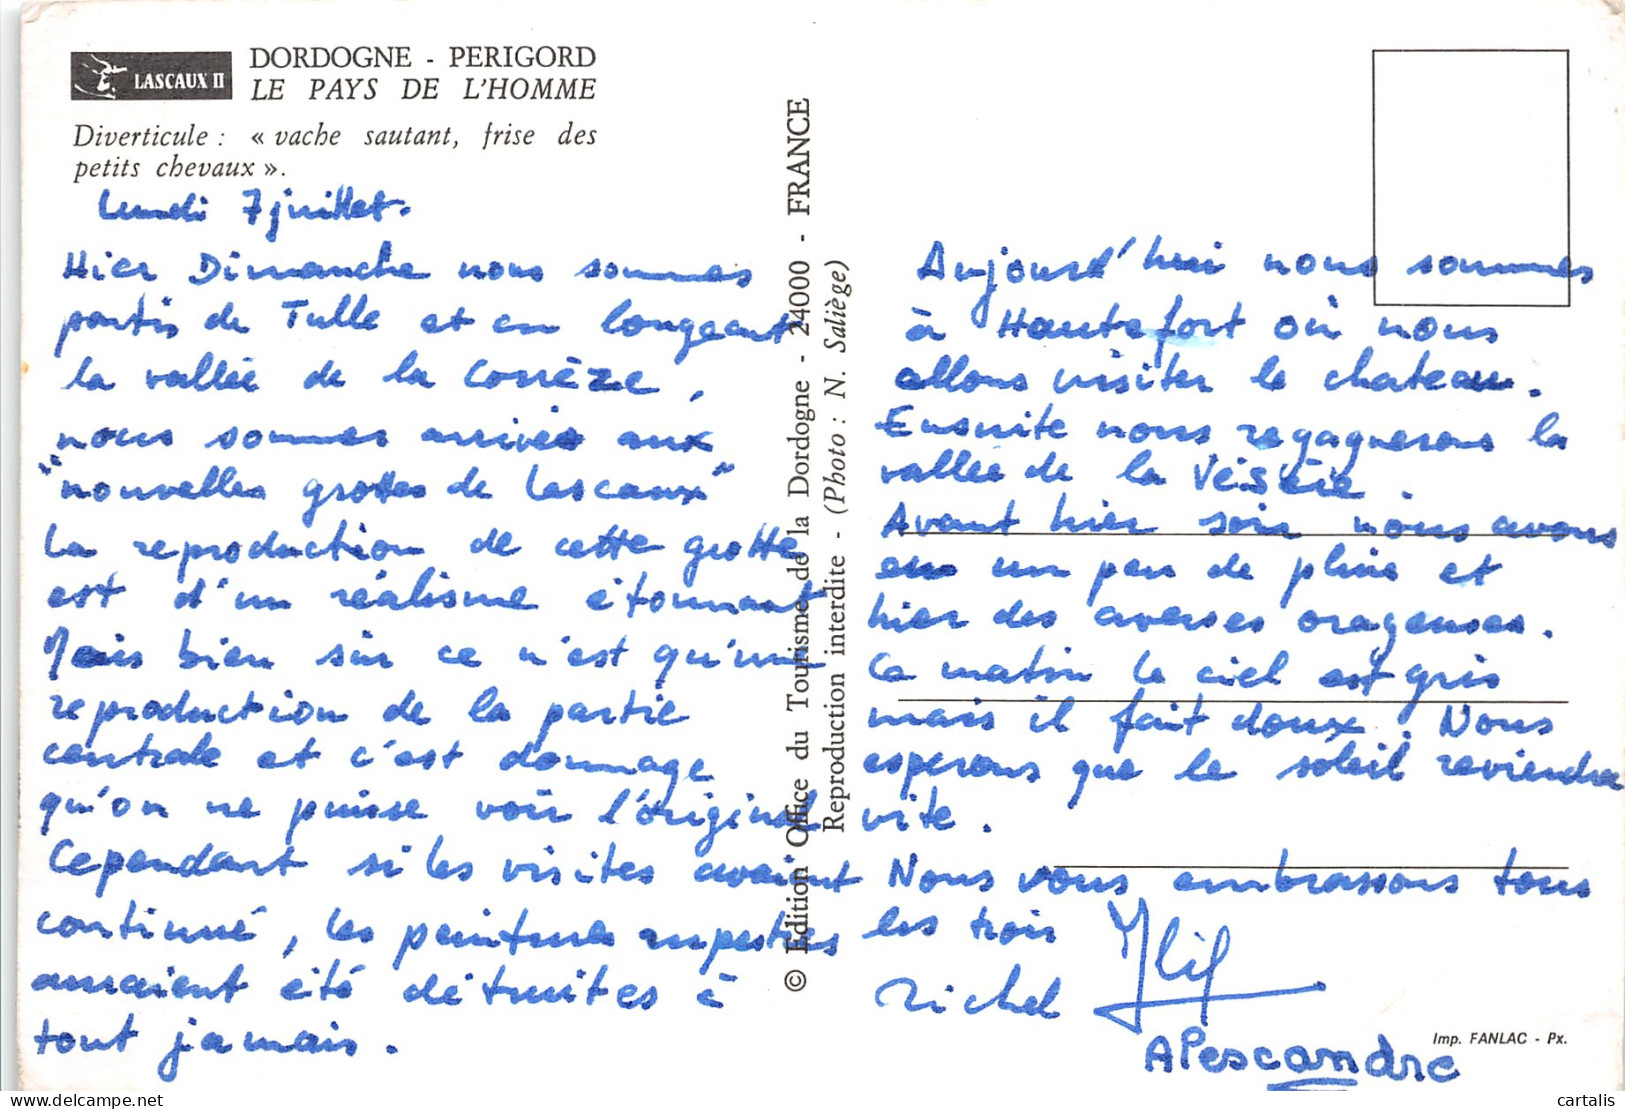 LASCAUX II
DORDOGNE - PERIGORD
LE PAYS DE L'HOMME
Diverticule : « vache sautant, frise des
petits chevaux ».
Lundi 7 juillet.
Hier Dimanche nous sommes
partis de Tulle et en longeant
la vallée de la Corrèze,
nous sommes arrivés aux
"nouvelles grottes de Lascaux"
La reproduction de cette grotte
est d'un réalisme étonnant
Mais bien sûr ce n'est qu'une
reproduction de la partie
centrale et c'est dommage
qu'on ne puisse voir l'original
Cependant si les visites avaient
continué, les peintures rupestres
auraient été détruites à
tout jamais.
© Edition Office du Tourisme de la Dordogne - 24000 - FRANCE
Reproduction interdite - (Photo : N. Saliège)
Aujourd'hui nous sommes
à Hautefort où nous
allons visiter le chateau.
Ensuite nous regagnerons la
vallée de la Vésère.
Avant hier soir nous avons
eu un peu de pluie et
hier des averses orageuses.
Ce matin le ciel est gris
mais il fait doux. Nous
esperons que le soleil reviendra
vite.
Nous vous embrassons tous
les trois
Michel
Alescandre
Imp. FANLAC - Px.
cartalis